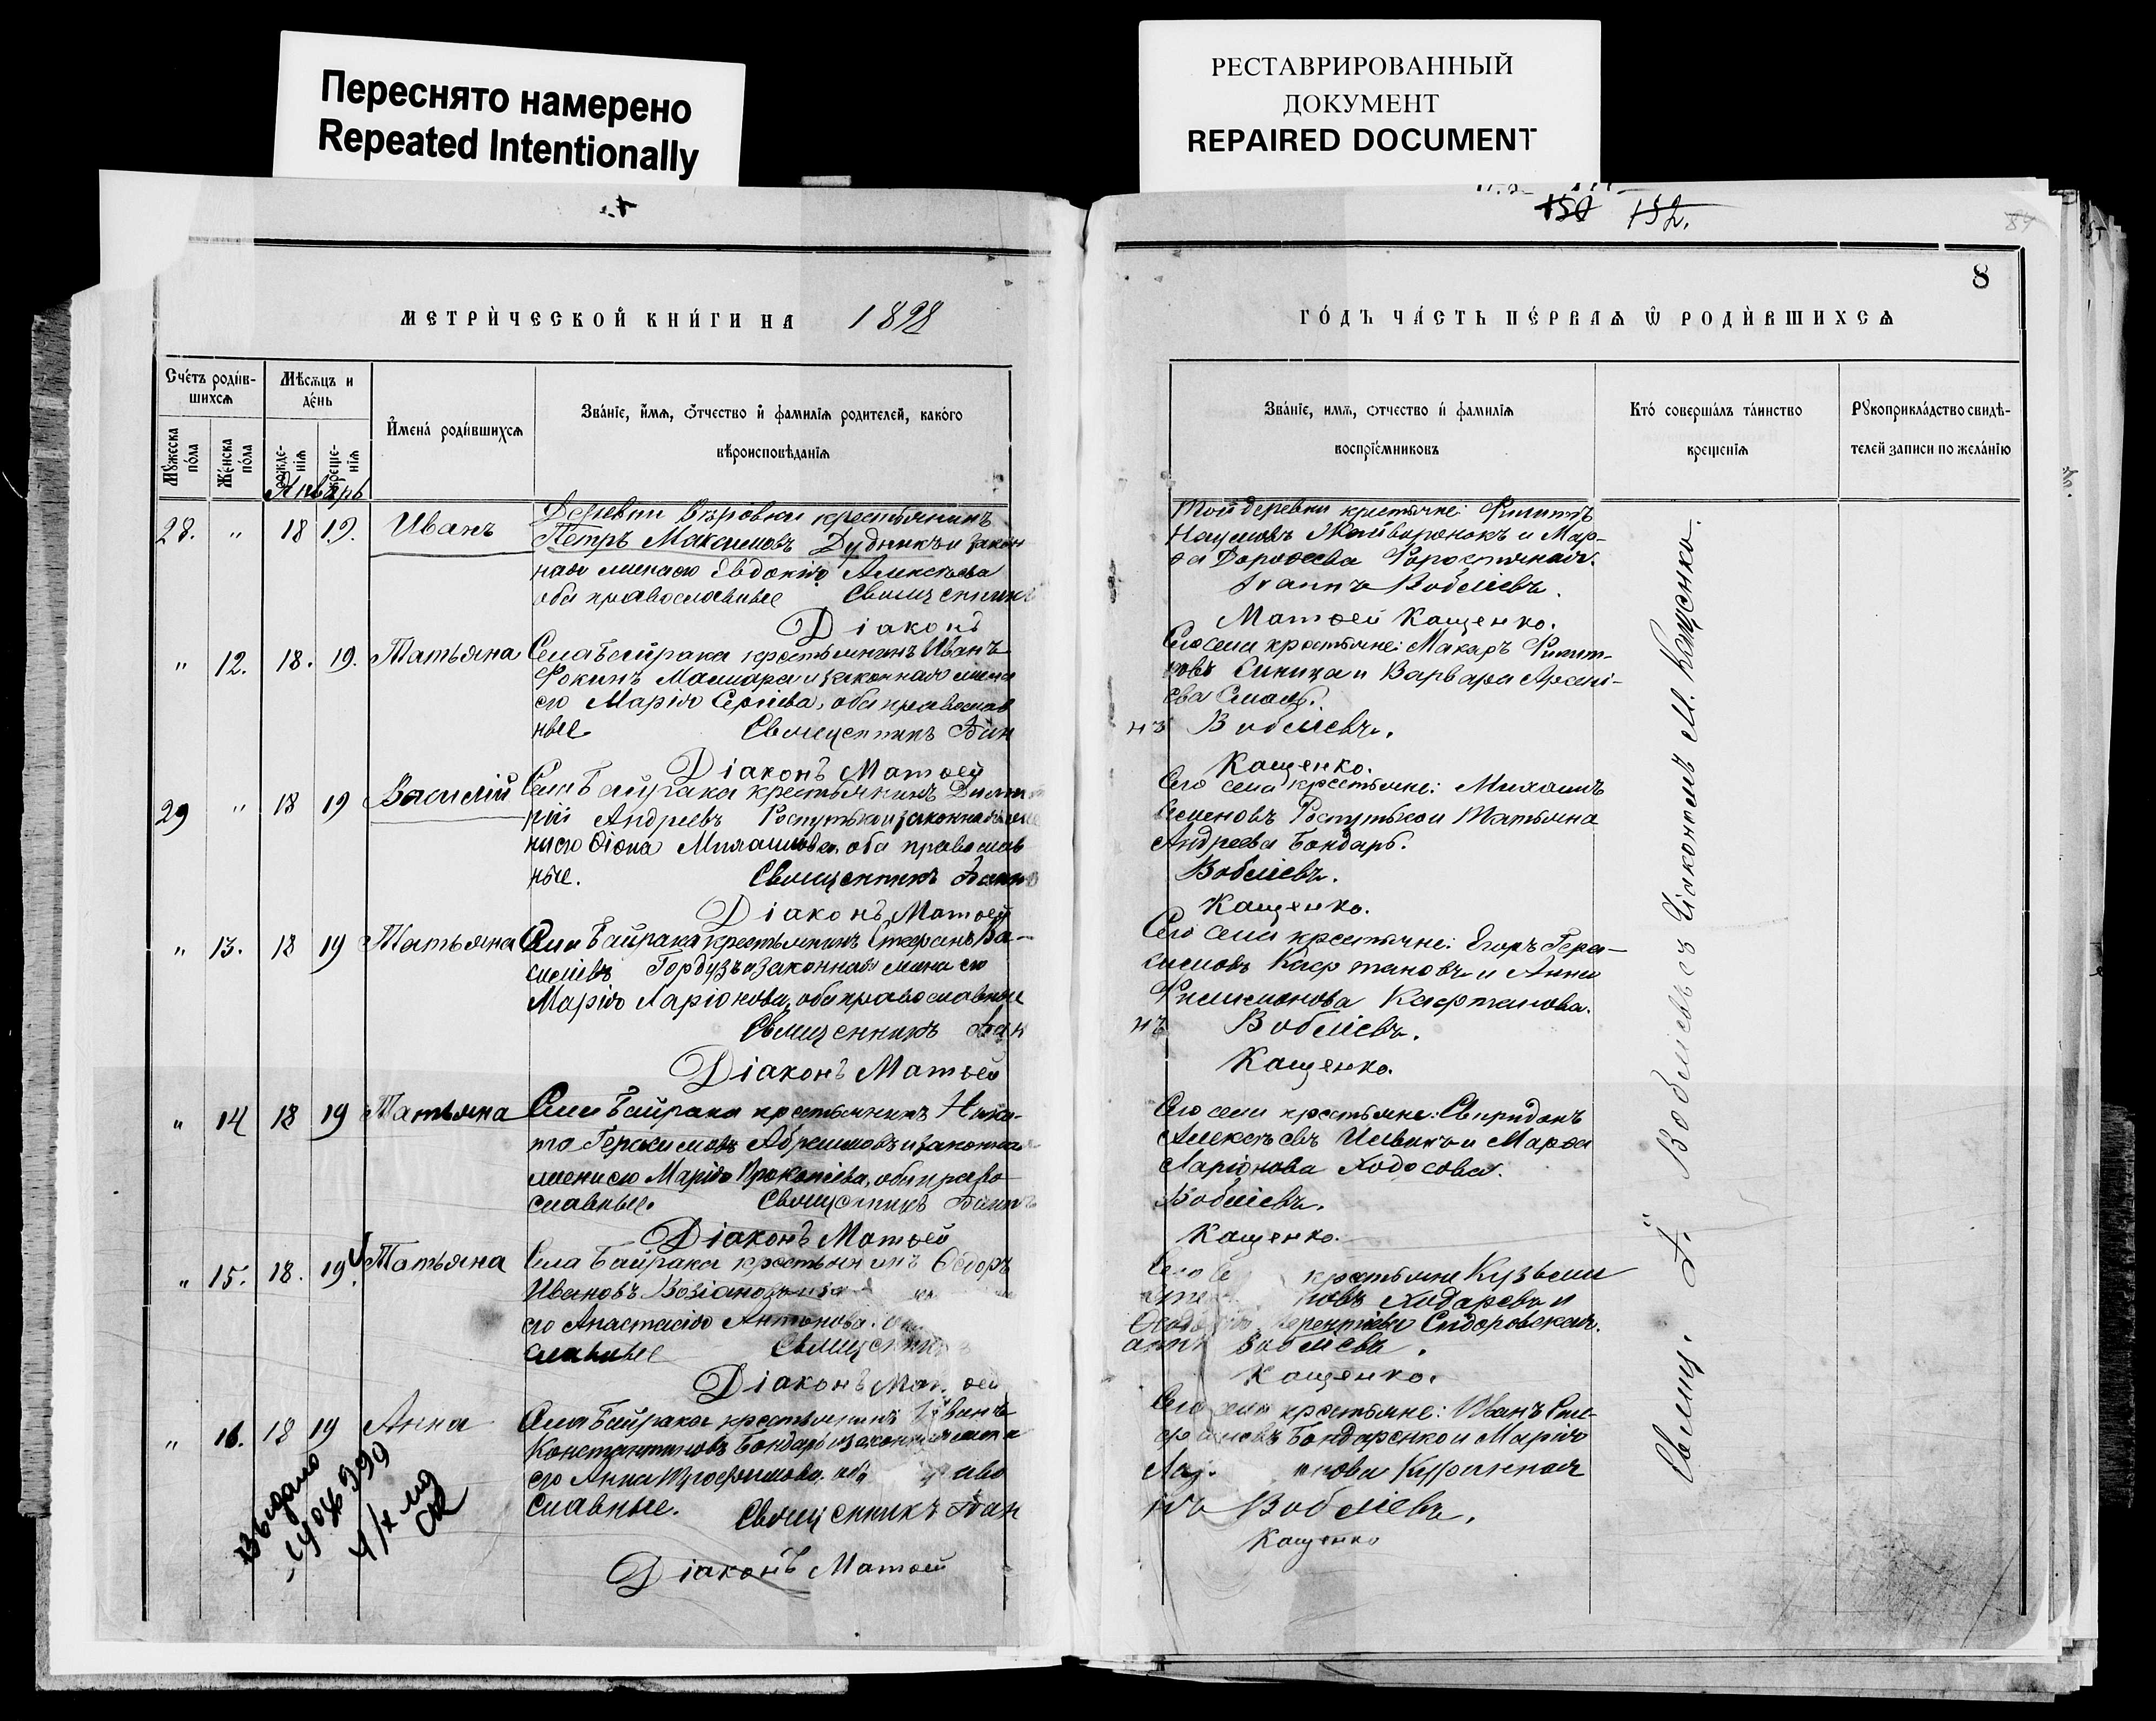 Переснято намерено
Repeated Intentionally
РЕСТАВРИРОВАННЫЙ
ДОКУМЕНТ
REPAIRED DOCUMENT
152.
8
МЕТРИ́ЧЕСКОЙ КНИ́ГИ НА 1898
ГО́ДЪ ЧА́СТЬ ПЕ́РВАѦ Ѿ РОДИ́ВШИХСѦ
Сче́тъ роди́в-
шихсѧ
Мѣ́сѧцъ и
де́нь
Мꙋ́жеска
по́ла
Же́нска
по́ла
рожде-
нїѧ
креще-
нїѧ
И҆мена́ роди́вшихсѧ
Зва́нїе, и҆́мѧ, ѻ҆́тчество и҆ фамилїѧ родителей, како́го
вѣроисповѣ́данїѧ
Зва́нїе, имѧ, ѻтчество и҆ фамилїѧ
воспрїе́мниковъ
Кто́ соверша́лъ та́инство
креще́нїѧ
Рꙋкоприкла́дство свидѣ́-
телей записи по жела́нїю
Январь
28. " 18 19. Иванъ
Деревни Вѣровки крестьянинъ
Петръ Максимовъ Дудникъ и закон
ная жена его Евдокія Алексѣева
оба православные Священник
Діаконъ
Той деревни крестьяне: Филиппъ
Наумовъ Жайворонокъ и Мар-
ѳа Дороѳеева Форостяная.
Іоаннъ Воблiевъ.
Матѳей Кащенко.
" 12. 18. 19. Татьяна
Села Байрака крестьянинъ Иванъ
Фокинъ Машара и законная жена
его Марія Сергіева, оба православ
ные Священникъ Іоан
Діаконъ Матѳей
Сего села крестьяне: Макаръ Филип-
повъ Синица и Варвара Арсені-
ева
нъ Воблiевъ.
Кащенко.
29 " 18 19 Василій
Села Байрака крестьянинъ Димит
рій Андреевъ Роспутько и законная же
на его Ѳіона Михаилова, оба православ
ные. Священникъ Іоанн
Діаконъ Матѳей
Сего села крестьяне: Михаилъ
Семеновъ Роспутько и Татьяна
Андреева Бондарь.
Воблiевъ.
Кащенко.
" 13. 18 19 Татьяна
Села Байрака крестьянинъ Стефанъ Ва-
силіевъ Гордузъ и законная жена его
Марія Ларіонова, оба православные
Священникъ Іоан
Діаконъ Матѳей
Сего села крестьяне: Егоръ Гера-
симовъ Кафтановъ и Анна
Филимонова Кафтанова.
нъ Воблiевъ.
Кащенко.
" 14 18 19 Татьяна
Села Байрака крестьянинъ Ники-
та Герасимовъ Абрамовъ и законная
жена его Марія Прокопіева, оба право
славные. Священникъ Іоаннъ
Діаконъ Матѳей
Сего села крестьяне: Свиридонъ
Алексѣевъ и Марѳа
Ларіонова Ходосова.
Воблiевъ.
Кащенко.
" 15. 18. 19. Татьяна
Села Байрака крестьянинъ Ѳедоръ
Ивановъ Возіановъ
его Анастасія Антонова.
славные Священник
Діаконъ Матѳей
Сего крестьяне Кузьма
Ходаревъ и
Терентіева Сидоровская.
аннъ Воблiевъ.
Кащенко.
" 16. 18 19 Анна
Села Байрака крестьянинъ Иванъ
Константиновъ Бондарь и законная жена
его Анна Трофимова, оба право
славные. Священникъ Іоан
Діаконъ Матѳей
Сего села крестьяне: Иванъ
Бондаренко и Марія
нъ Воблiевъ.
Кащенко
Свящ. І. Воблiевъ съ діакономъ М. Кащенко.
Выдано